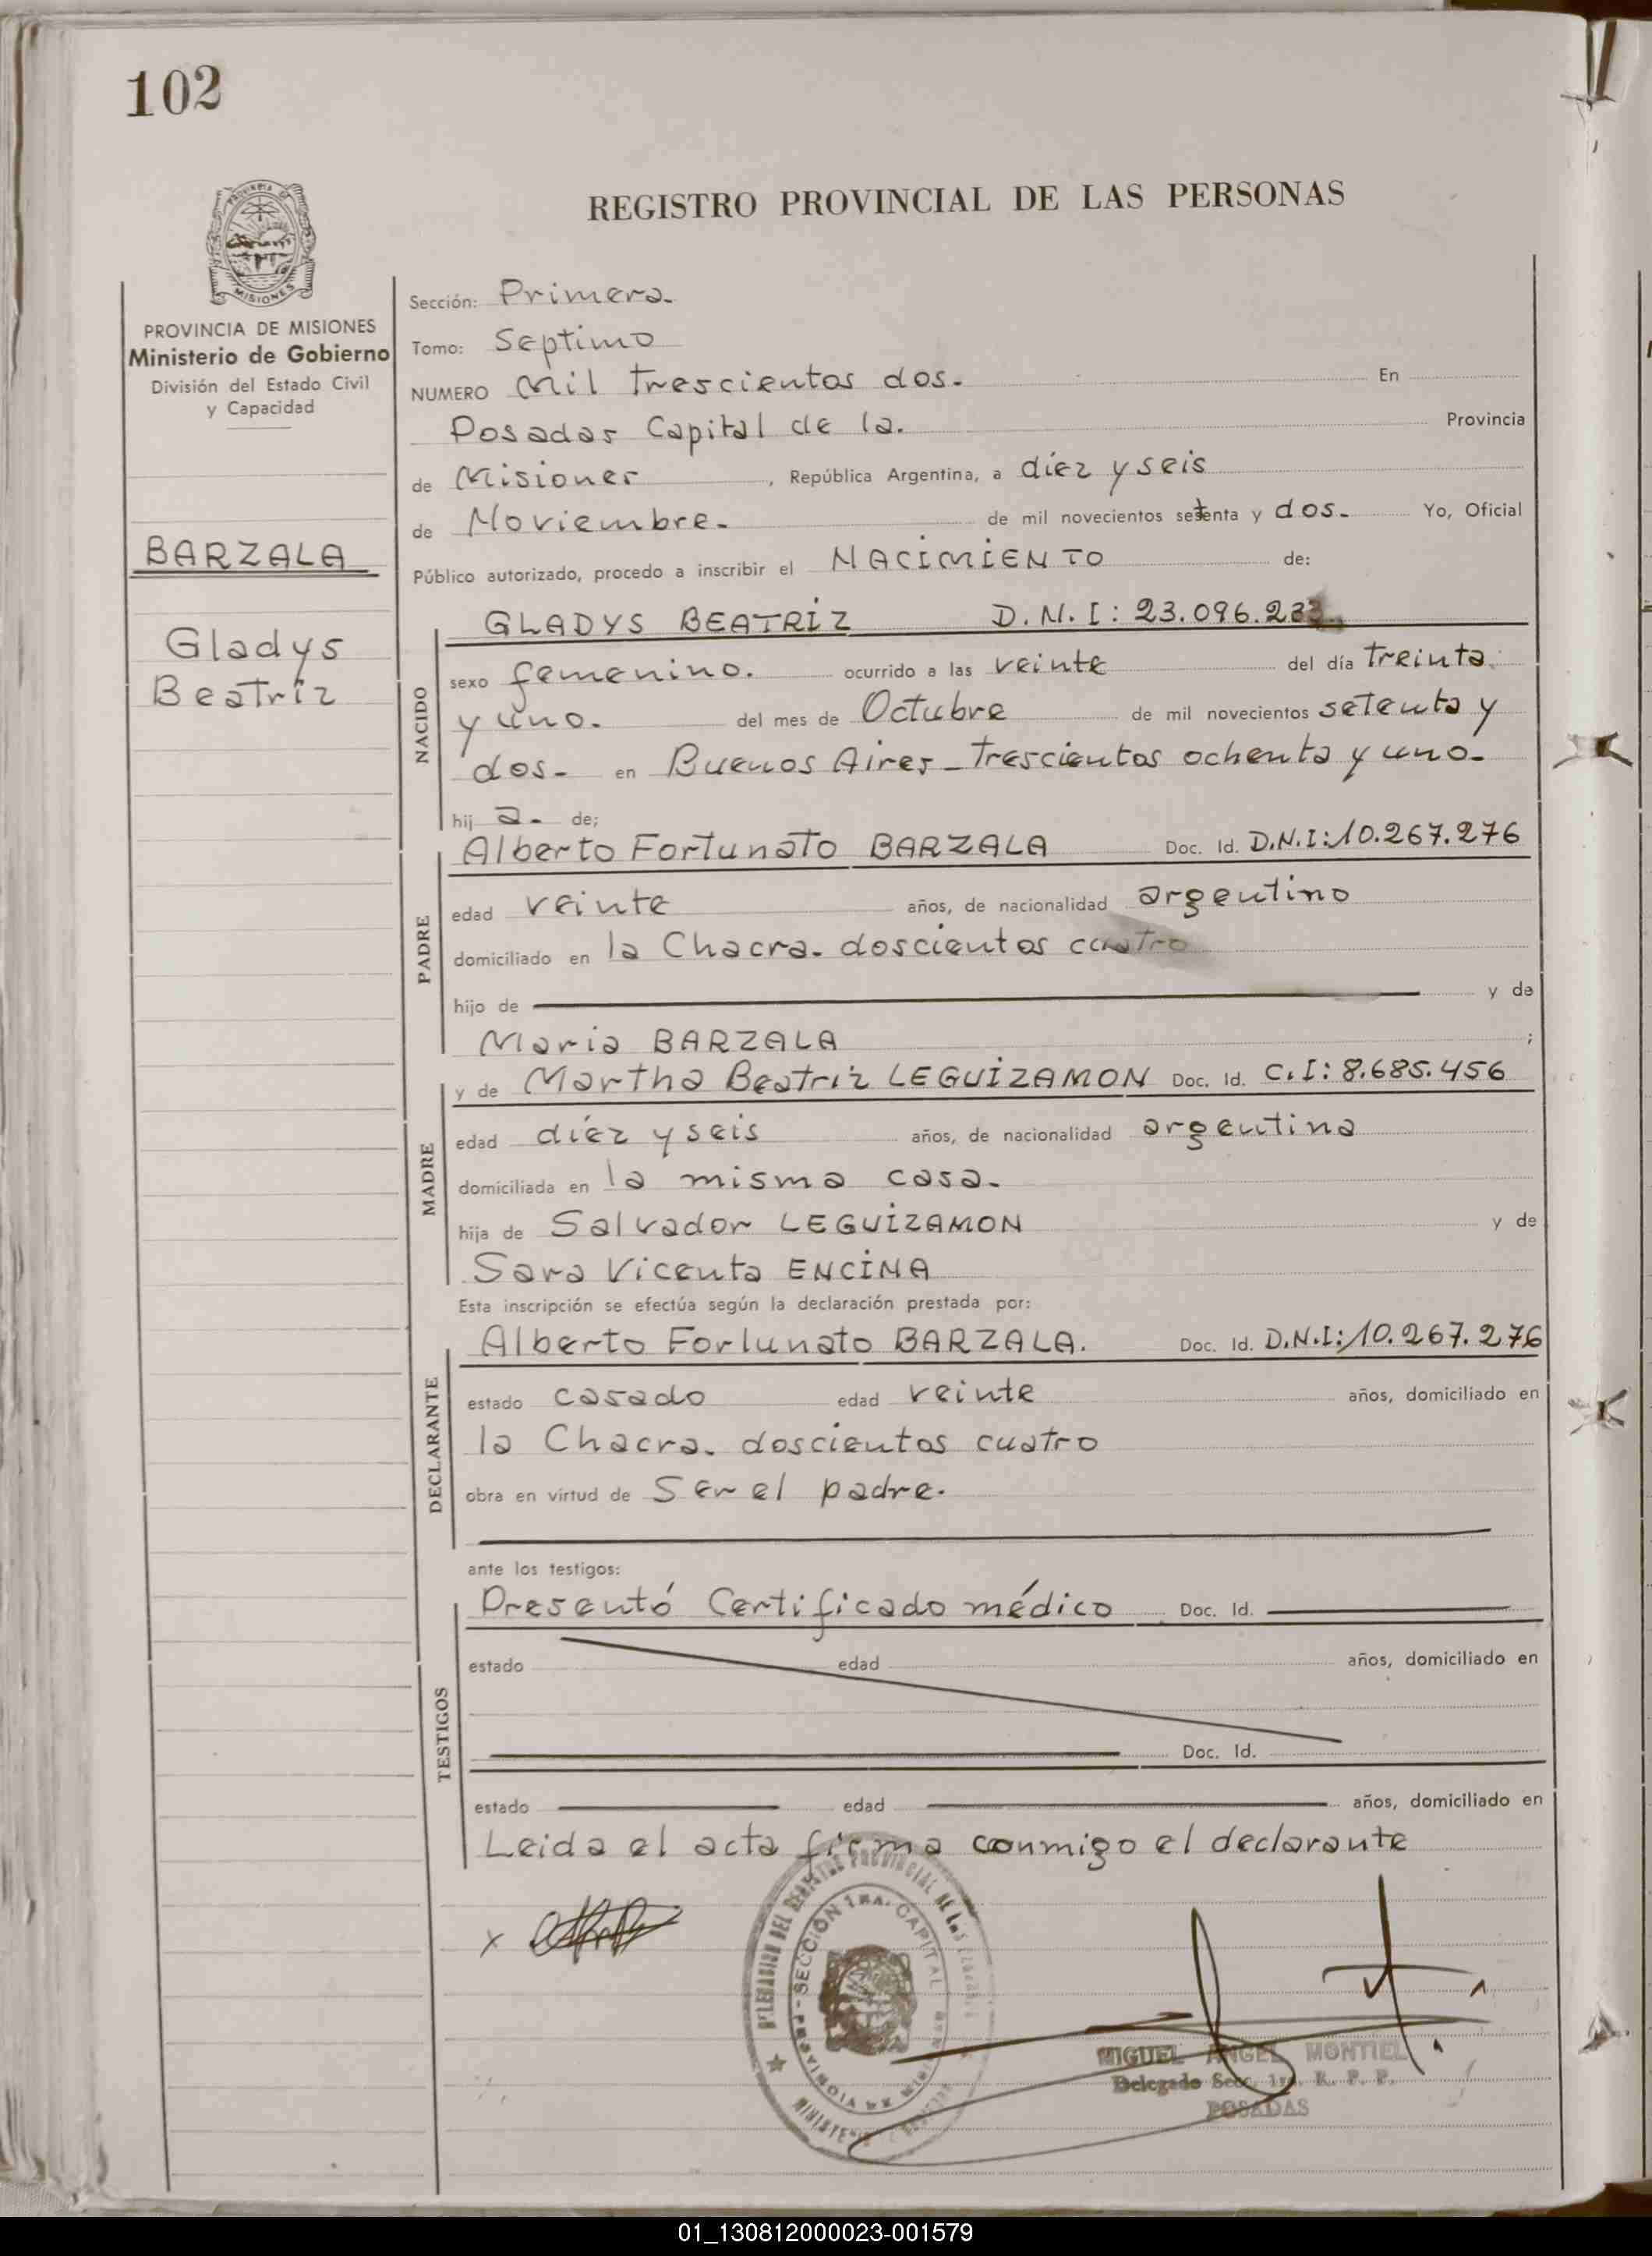 102
PROVINCIA DE MISIONES
Ministerio de Gobierno
División del Estado Civil
y Capacidad
BARZALA
Gladys
Beatríz
REGISTRO PROVINCIAL DE LAS PERSONAS
Sección: Primera.
Tomo: Septimo
NUMERO Mil trescientos dos. En
Posadas Capital de la. Provincia
de Misiones, República Argentina, a diez y seis
de Noviembre. de mil novecientos setenta y dos. Yo, Oficial
Público autorizado, procedo a inscribir el NACIMIENTO de:
GLADYS BEATRIZ D.N.I: 23.096.233
NACIDO
sexo femenino. ocurrido a las veinte del día treinta
y uno. del mes de Octubre de mil novecientos setenta y
dos- en Buenos Aires-trescientos ochenta y uno-
hij a. de;
Alberto Fortunato BARZALA Doc. Id. D.N.I:10.267.276
PADRE
edad veinte años, de nacionalidad argentino
domiciliado en la Chacra. doscientos cuatro
hijo de y de
Maria BARZALA ;
y de Martha Beatriz LEGUIZAMON Doc. Id. C.I: 8.685.456
MADRE
edad diez y seis años, de nacionalidad argentina
domiciliada en la misma casa.
hija de Salvador LEGUIZAMON y de
Sara Vicenta ENCINA
Esta inscripción se efectúa según la declaración prestada por:
Alberto Fortunato BARZALA. Doc. Id. D.N.I:10.267.276
DECLARANTE
estado casado edad veinte años, domiciliado en
la Chacra. doscientos cuatro
obra en virtud de Ser el padre.
ante los testigos:
Presentó Certificado médico Doc. Id.
TESTIGOS
estado edad años, domiciliado en
Doc. Id.
estado edad años, domiciliado en
Leida el acta firma conmigo el declarante
x
SECCIÓN 1RA. CAPITAL
MIGUEL ANGEL MONTIEL
Delegado Secc. 1ra. R. P. P.
POSADAS
01_130812000023-001579